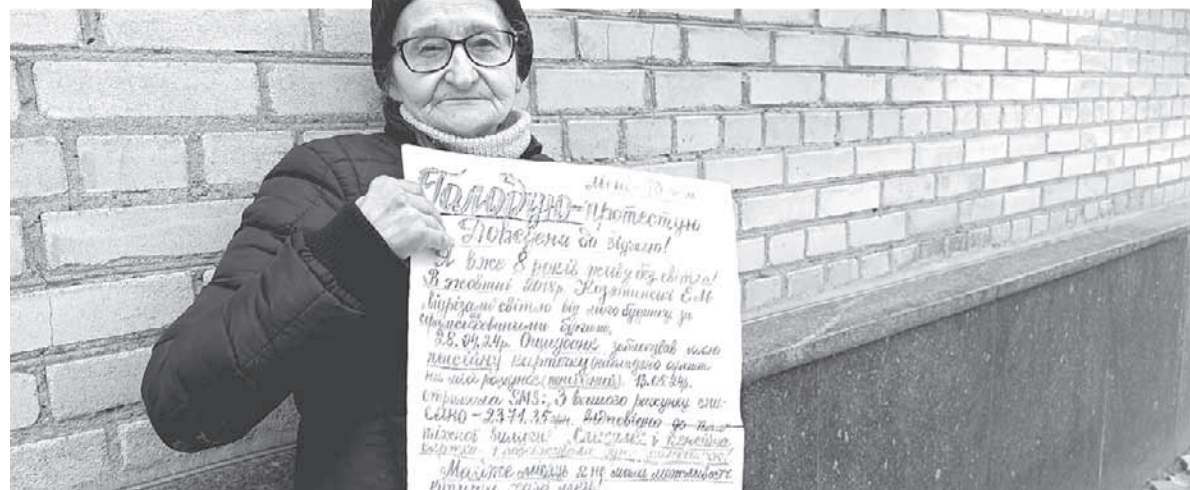 Мені
Голодую-протестую
Доведена до відчаю!
Я вже 8 років живу без світла!
В жовтні 2018р. Козятинські Е.М
відрізали світло від мого будинку за
сфальсифікованими
28. 24р. Ощадбанк заблокував мою
пенсійну карточку (накладено арешт
на мій рахунок (пенсійний). 13.05.24р.
отримала SMS: З вашого рахунку спи-
сано - 2371.35 грн. Відповідно до пла-
тіжної вимоги. і пенсійна
картка
Майже місяць я не мала можливості
купити